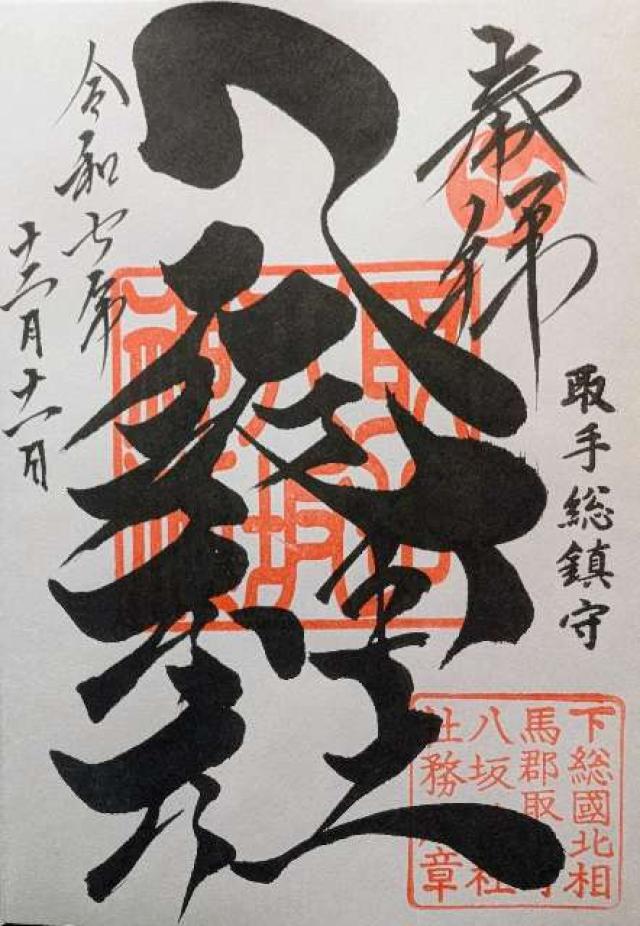 奉拝
取手総鎮守
八坂神社
令和七年
十二月十六日
下総國北相
馬郡取
八坂 社
社務 章